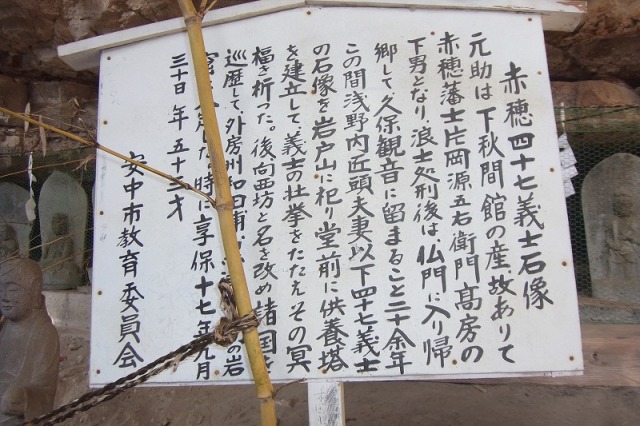 赤穂四十七義士石像
元助は下秋間館の産、故ありて
赤穂藩士片岡源五右衛門高房の
下男となり、浪士処刑後は、仏門に入り帰
郷して、久保観音に留まること二十余年
この間浅野内匠頭夫妻以下四十七義士
の石像を岩戸山に祀り堂前に供養塔
を建立して、義士の壮挙をたたえその冥
福を祈った。後向西坊と名を改め諸国を
巡歴して、外房州和田浦 の岩
時に享保十七年九月
三十日 年五十三才
安中市教育委員会